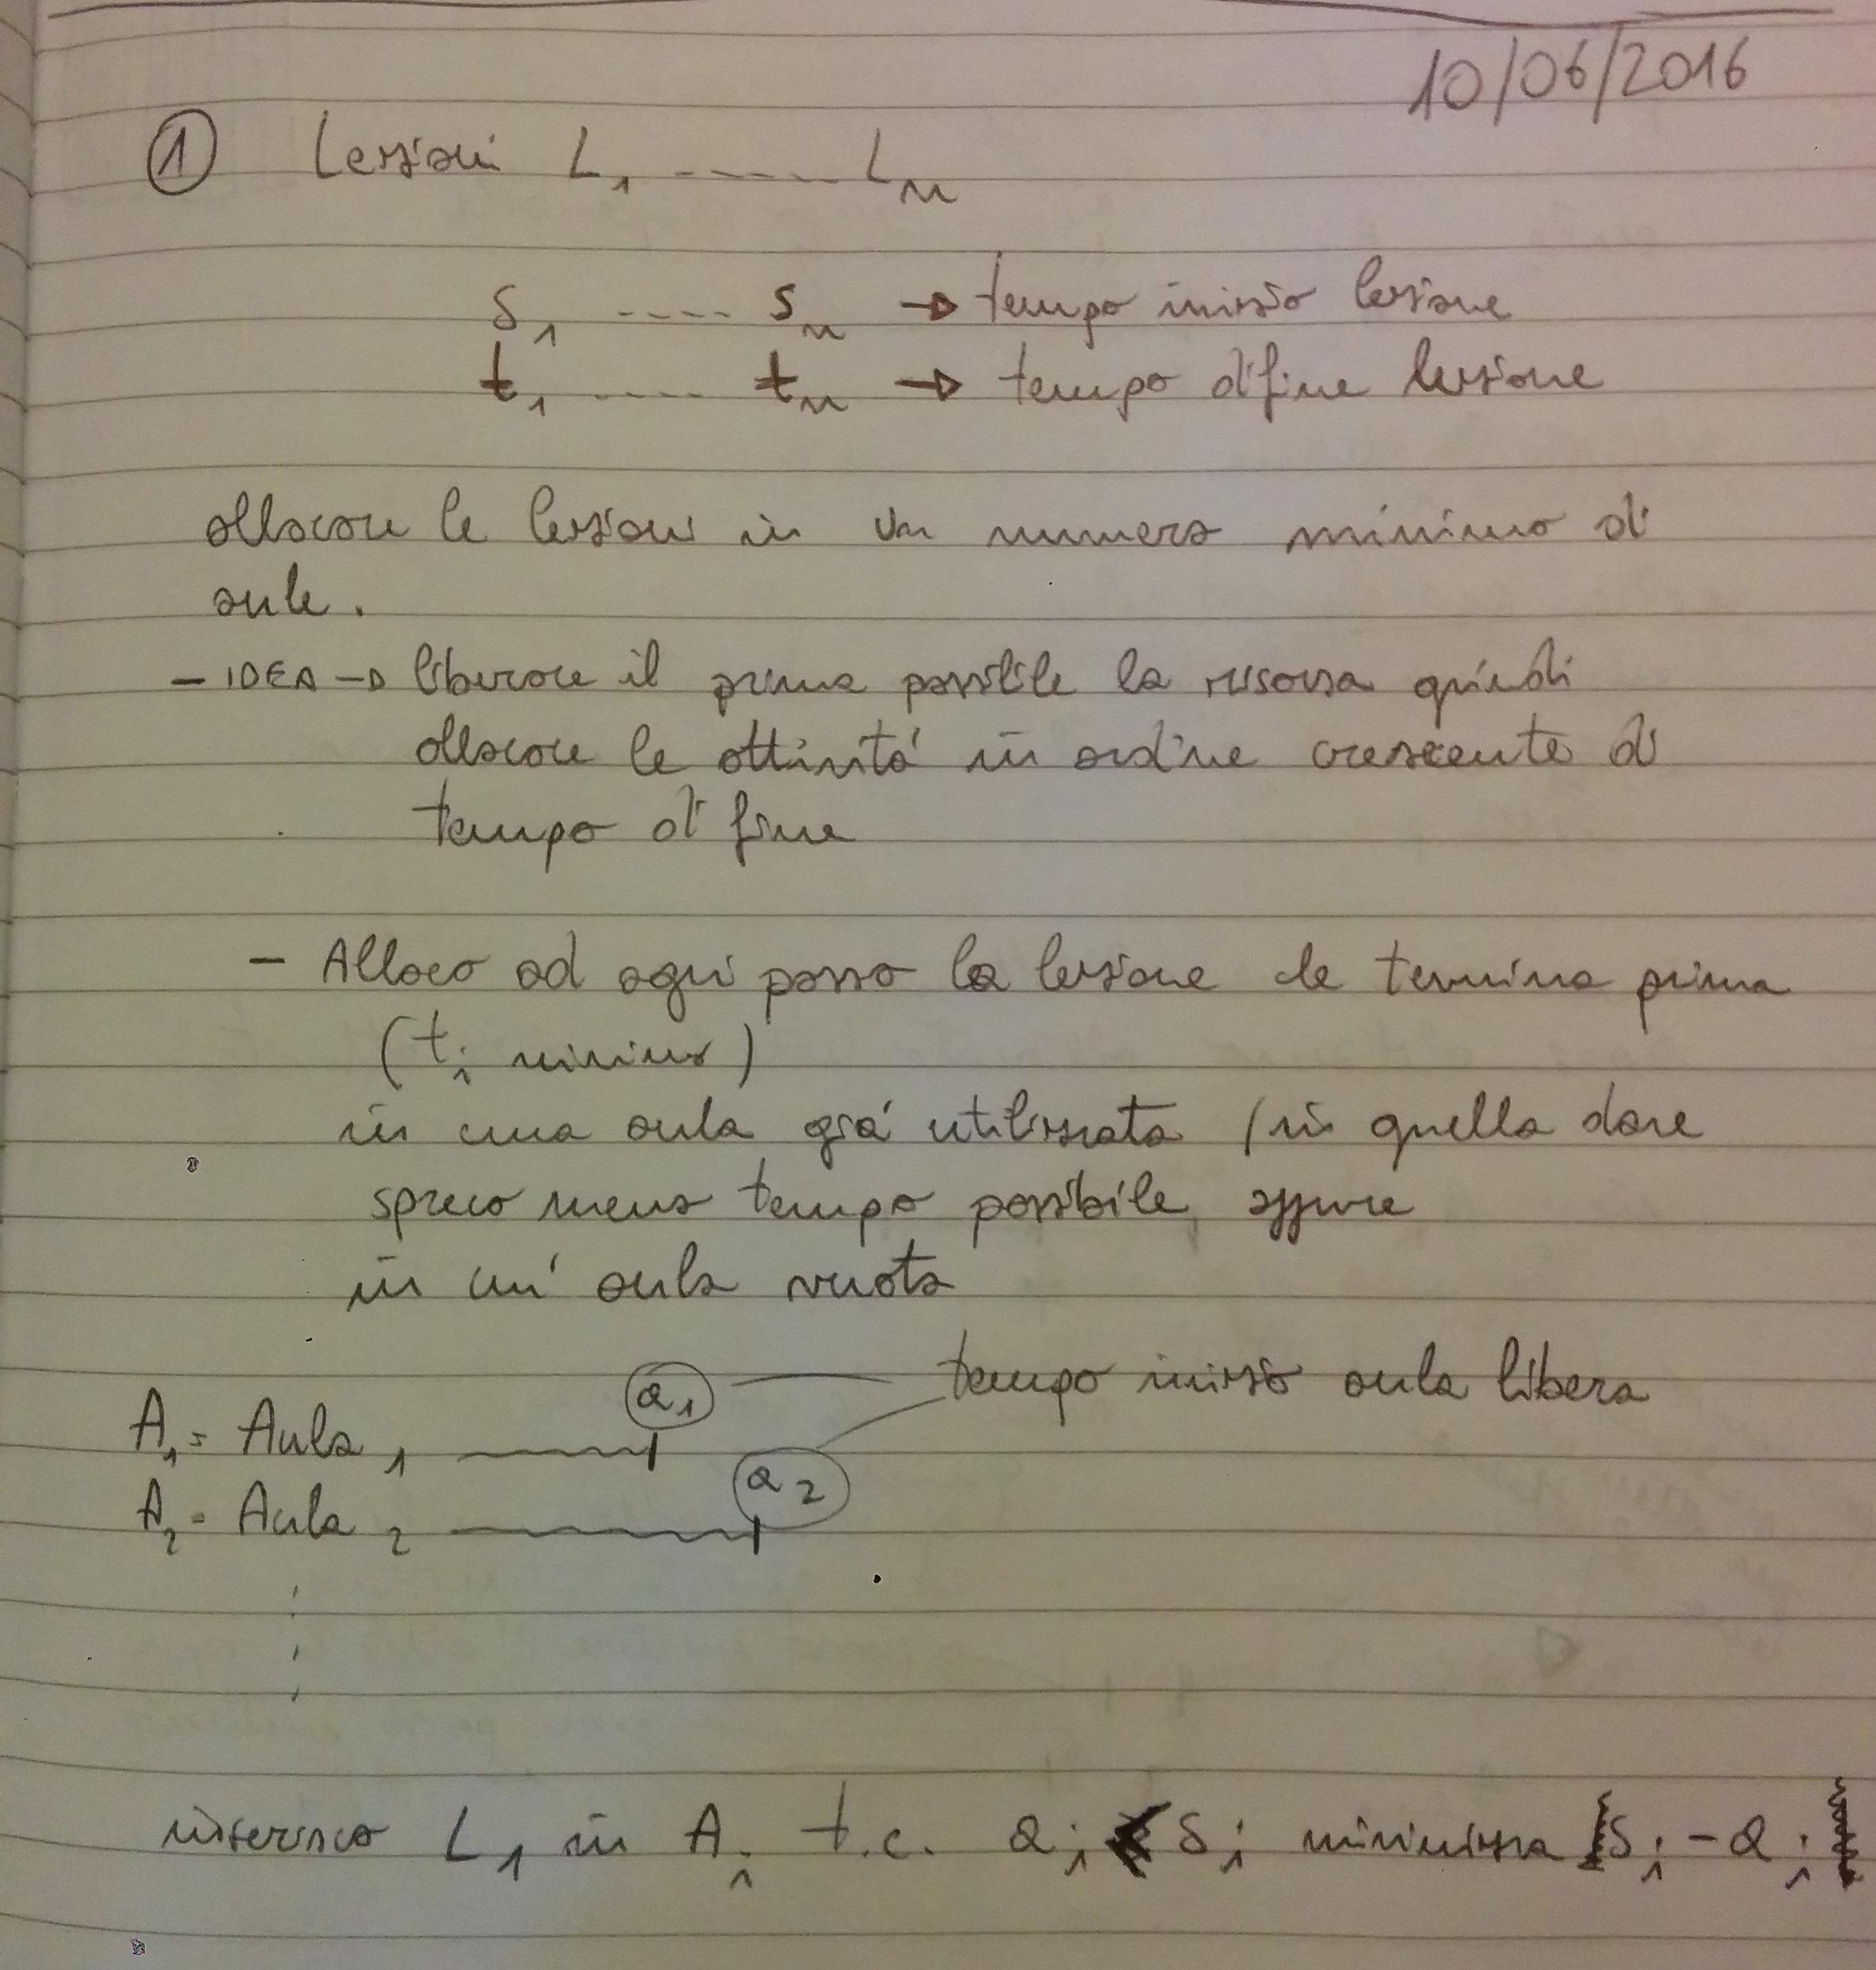 10/06/2016
① Lezioni L₁ ------ Lₙ
s₁ ---- sₙ → tempo inizio lezione
t₁ ---- tₙ → tempo di fine lezione
allocare le lezioni in un numero minimo di
aule.
- IDEA → liberare il prima possibile la risorsa quindi
allocare le attività in ordine crescente di
tempo di fine
- Alloco ad ogni passo la lezione che termina prima
(tᵢ minimo)
in una aula già utilizzata (in quella dove
spreco meno tempo possibile, oppure
in un' aula vuota
A₁ = Aula ₁ a₁ tempo inizio aula libera
A₂ = Aula ₂ a₂
inserisco L₁ in Aᵢ t.c. aᵢ < sᵢ minimizza sᵢ - aᵢ